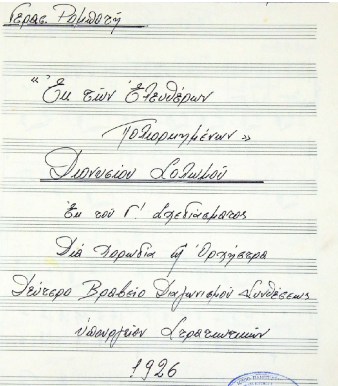 Γερασ. Ρομποτή
"Ἐκ τῶν Ἐλευθέρων
Πολιορκημένων»
Διονυσίου Σολωμοῦ
Ἐκ τοῦ Γ! Σχεδιάσματος
Διὰ Χορωδία & Ὀρχήστρα
Δεύτερο Βραβεῖο Διαγωνισμοῦ Συνθέσεως
ὑπουργείου Στρατιωτικῶν
1926